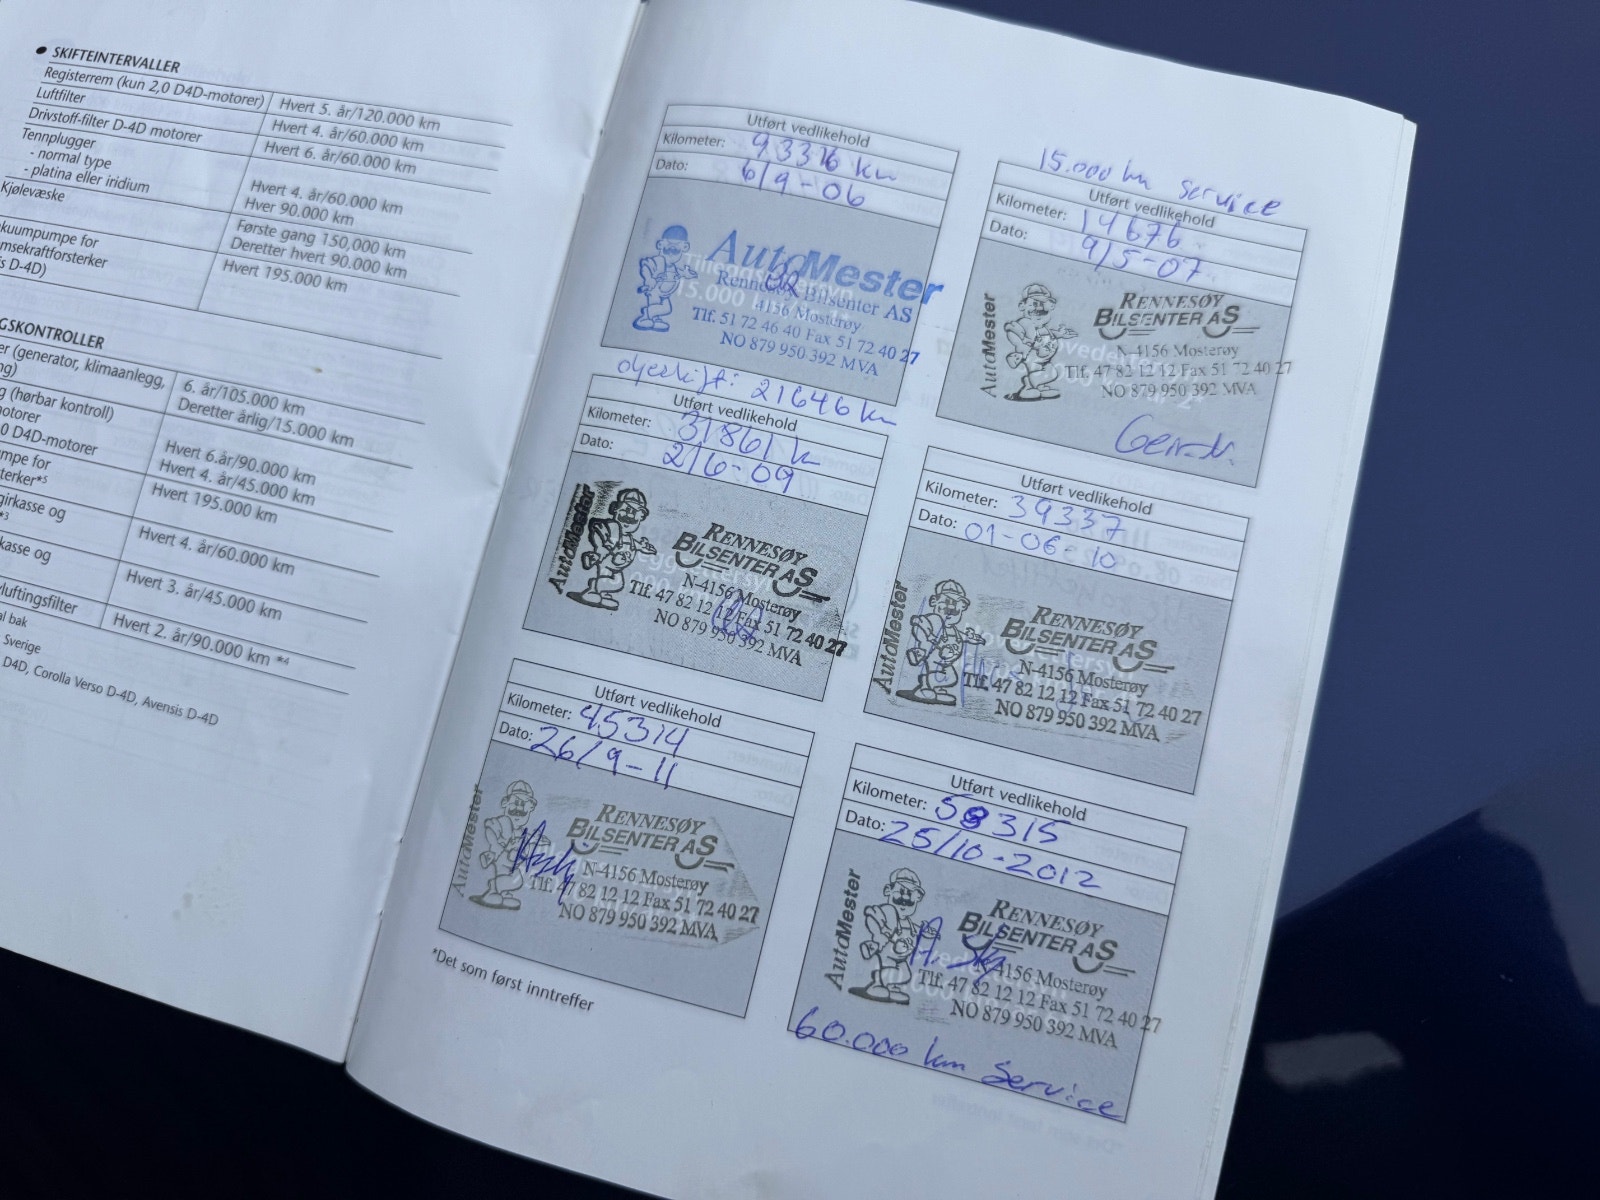 ● SKIFTEINTERVALLER
Registerrem (kun 2,0 D4D-motorer) Hvert 5. år/120.000 km
Luftfilter Hvert 4. år/60.000 km
Drivstoff-filter D-4D motorer Hvert 6. år/60.000 km
Tennplugger
- normal type Hvert 4. år/60.000 km
- platina eller iridium Hver 90.000 km
Kjølevæske Første gang 150,000 km
Deretter hvert 90.000 km
kuumpumpe for Hvert 195.000 km
msekraftforsterker
is D-4D)
GSKONTROLLER
er (generator, klimaanlegg, 6. år/105.000 km
ng) Deretter årlig/15.000 km
g (hørbar kontroll)
motorer Hvert 6.år/90.000 km
0 D4D-motorer Hvert 4. år/45.000 km
mpe for Hvert 195.000 km
terker*5
girkasse og Hvert 4. år/60.000 km
*3
kasse og Hvert 3. år/45.000 km
luftingsfilter Hvert 2. år/90.000 km *4
al bak
Sverige
D4D, Corolla Verso D-4D, Avensis D-4D
Utført vedlikehold
Kilometer: 93316 km
Dato: 6/9-06
AutoMester
Rennesøy Bilsenter AS
4156 Mosterøy
Tlf. 51 72 46 40 Fax 51 72 40 27
NO 879 950 392 MVA
15.000 km service
Utført vedlikehold
Kilometer: 14676
Dato: 9/5-07
AutoMester
RENNESØY
BILSENTER AS
N-4156 Mosterøy
Tlf. 47 82 12 12 Fax 51 72 40 27
NO 879 950 392 MVA
oljeskift: 21646 km
Utført vedlikehold
Kilometer: 31861 k
Dato: 2/6-09
AutoMester
RENNESØY
BILSENTER AS
N-4156 Mosterøy
Tlf. 47 82 12 12 Fax 51 72 40 27
NO 879 950 392 MVA
Utført vedlikehold
Kilometer: 39337
Dato: 01-06-10
AutoMester
RENNESØY
BILSENTER AS
N-4156 Mosterøy
Tlf. 47 82 12 12 Fax 51 72 40 27
NO 879 950 392 MVA
Utført vedlikehold
Kilometer: 45314
Dato: 26/9-11
AutoMester
RENNESØY
BILSENTER AS
N-4156 Mosterøy
Tlf. 47 82 12 12 Fax 51 72 40 27
NO 879 950 392 MVA
Utført vedlikehold
Kilometer: 58315
Dato: 25/10-2012
AutoMester
RENNESØY
BILSENTER AS
N-4156 Mosterøy
Tlf. 47 82 12 12 Fax 51 72 40 27
NO 879 950 392 MVA
60.000 km Service
*Det som først inntreffer